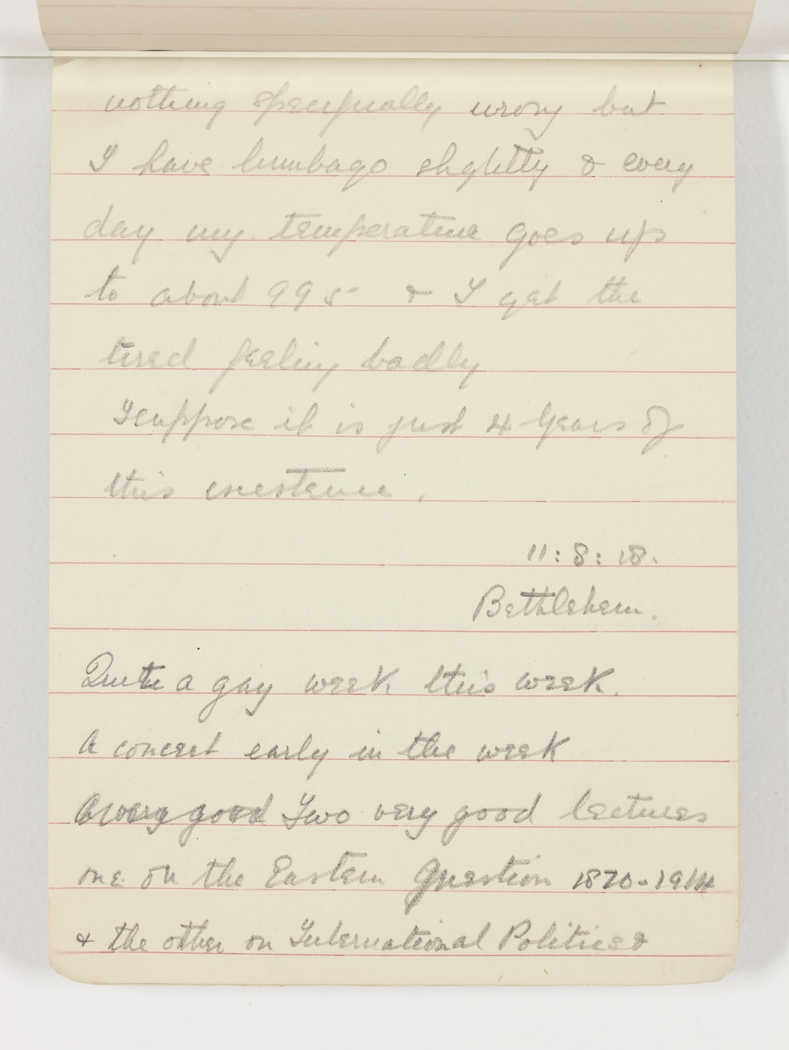 nothing specifually wrong but
I have lumbago slightly & every
day my temperature goes up
to about 995 & I get the
tired feeling badly
I suppose it is just 4 years of
this existence.
11:8:18.
Bethlehem.
Quite a gay week this week.
A concert early in the week
A very good Two very good lectures
one on the Eastern Question 1870-1914
& the other on International Politics &